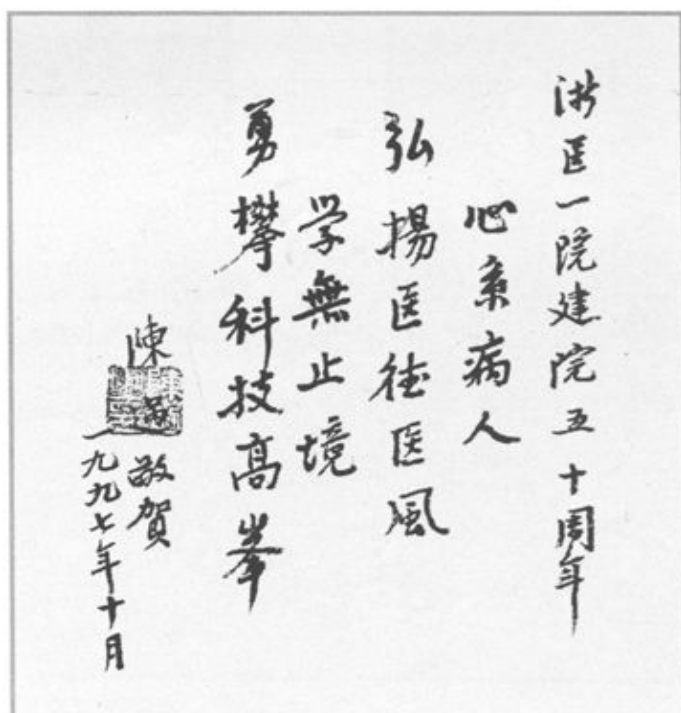 浙医一院建院五十周年
心系病人
弘揚医德医風
学無止境
勇攀科技高峯
陳 敬賀
一九九七年十月